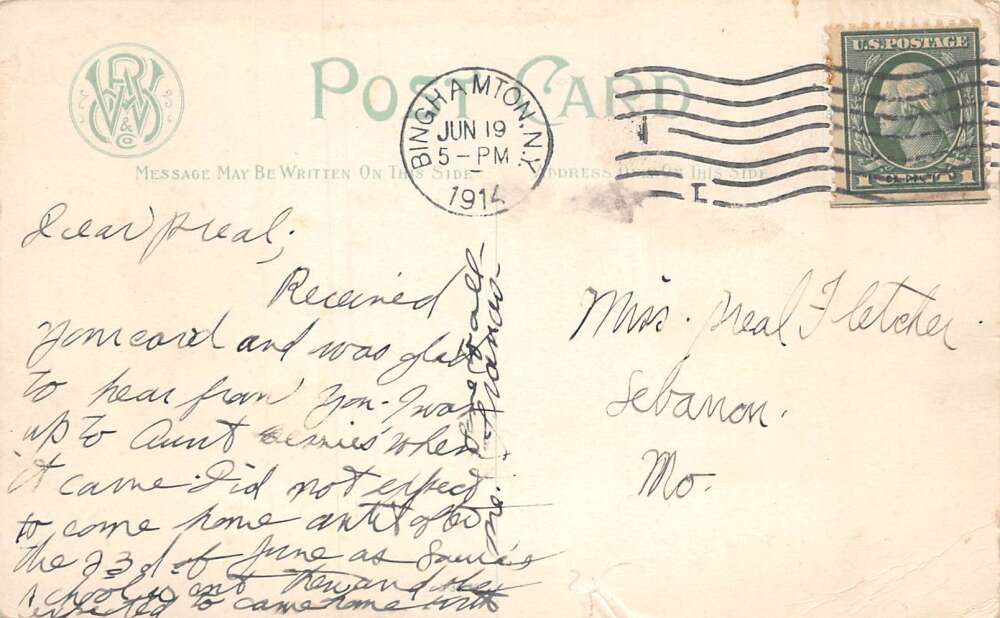 POST CARD
BINGHAMTON, N.Y.
JUN 19
5-PM
1914
U.S. POSTAGE
W & Co
MESSAGE MAY BE WRITTEN ON THIS SIDE
ADDRESS ONLY ON THIS SIDE
Dear Neal;
Received
your card and was glad
to hear from you. I was
up to Aunt when
it came. Did not expect
to come home until after
the 23d of June as
school is out then and she
expected to come home with
me. Love to all
Frances.
Miss. Neal Fletcher.
Lebanon.
Mo.